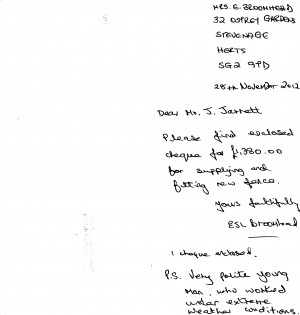 MRS. E. BROOMHEAD
32 OSPREY GARDENS
STEVENAGE
HERTS
SG2 9PD
28th November 2012
Dear Mr. J. Jarrett
Please find enclosed
cheque for £1,380.00
for supplying and
fitting new fence.
Yours faithfully
ESL Broomhead
1 cheque enclosed.
P.S. Very polite young
Man, who worked
under extreme
weather conditions.